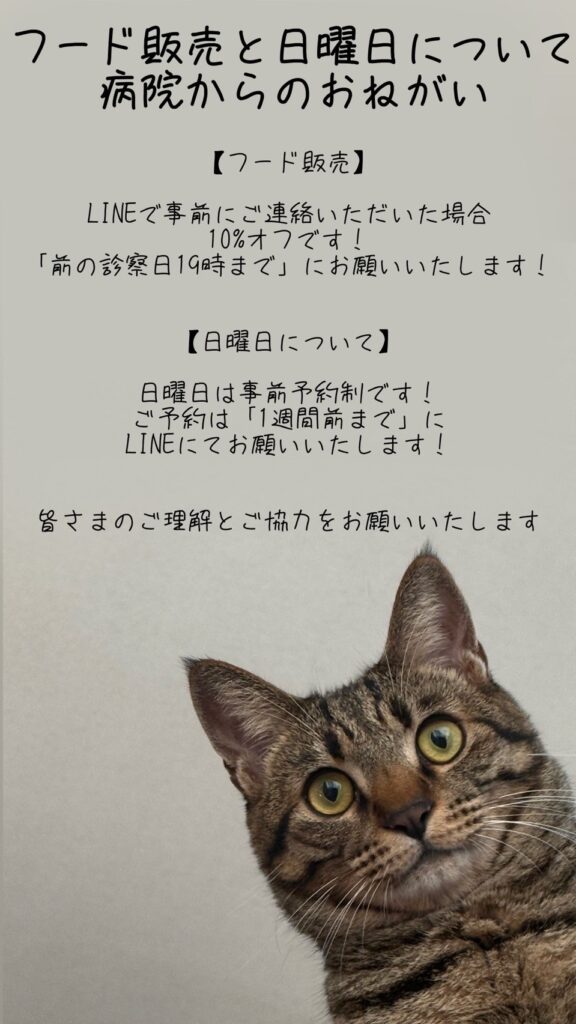 フード販売と日曜日について
病院からのおねがい
【フード販売】
LINEで事前にご連絡いただいた場合
10%オフです！
「前の診察日19時まで」にお願いいたします！
【日曜日について】
日曜日は事前予約制です！
ご予約は「1週間前まで」に
LINEにてお願いいたします！
皆さまのご理解とご協力をお願いいたします